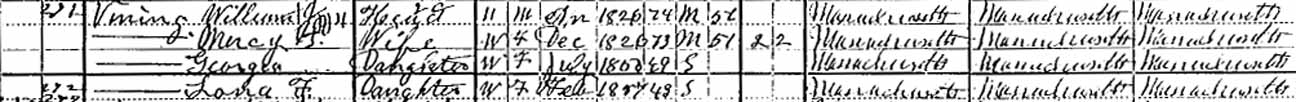 271 Vining, William J. Head W M Jan 1826 74 M 51 Massachusetts Massachusetts Massachusetts
— Mercy S. Wife W F Dec 1826 73 M 51 2 2 Massachusetts Massachusetts Massachusetts
— Georgea Daughter W F July 1850 49 S Massachusetts Massachusetts Massachusetts
272 — Lona F. Daughter W F Feb 1857 43 S Massachusetts Massachusetts Massachusetts